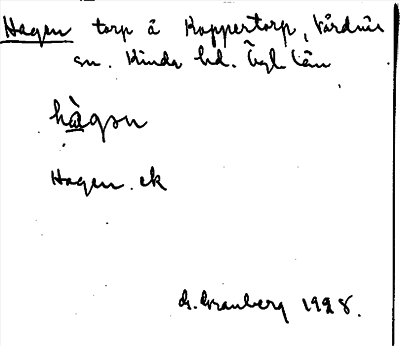 Hagen torp å Koppertorp, Vårdnäs
sn. Kinda hd. Ögl. län
hàgən
Hagen. ek
G. Granberg 1928.